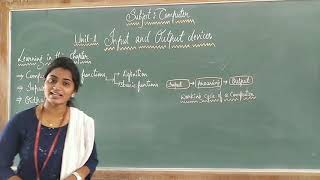 Subject: Computer
Unit-1 Input and Output devices
Learning in this chapter
→ Comp functions → Definition
→ Basic functions
→ Inpu
→ Out
Input → Processing → Output
Working cycle of a Computer